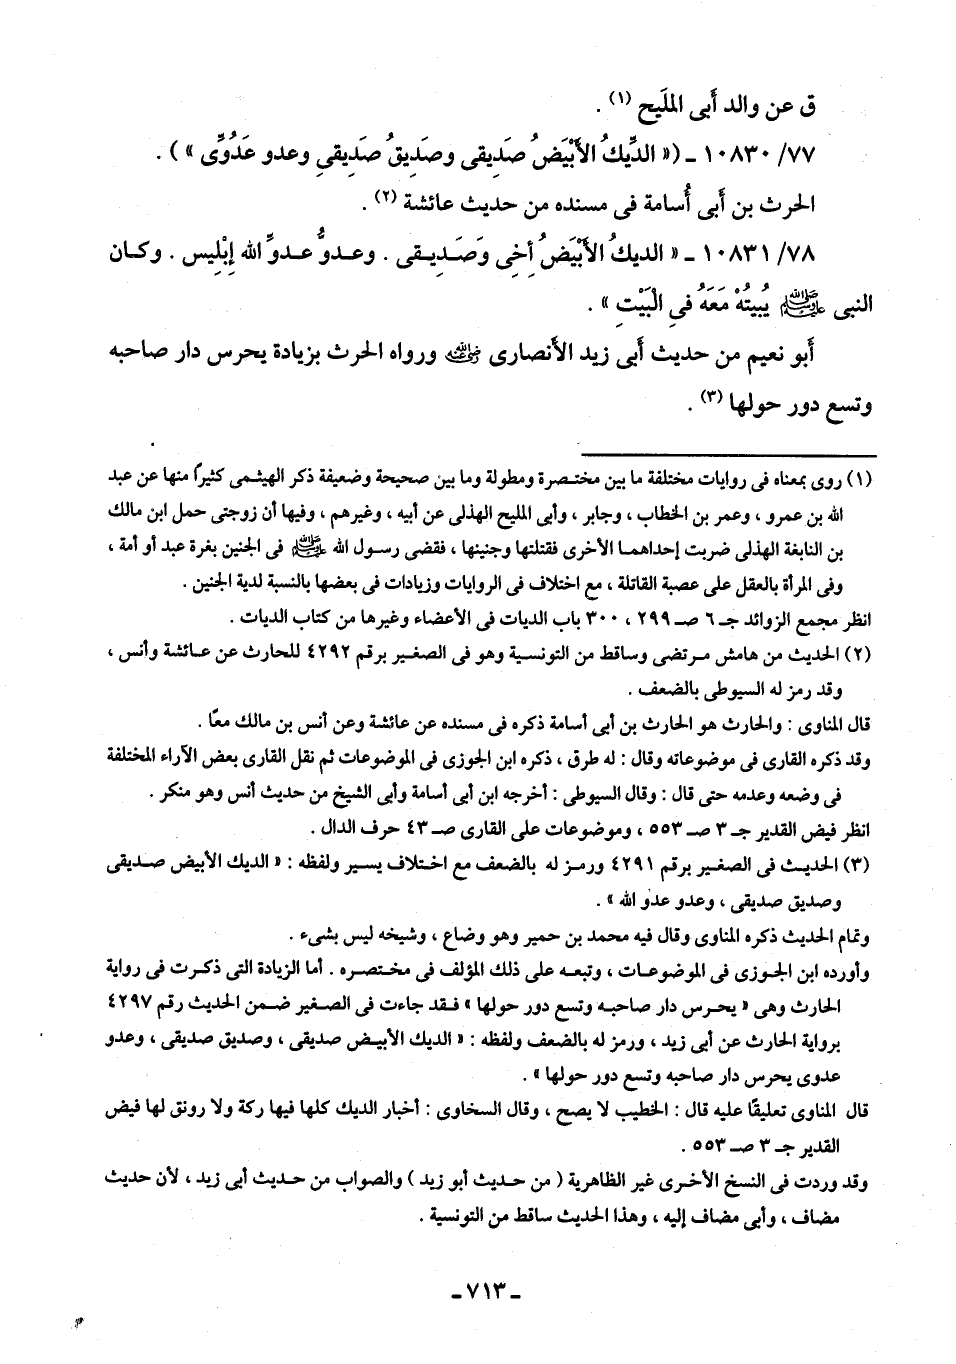 ق عن والد أَبى المليَح (١) .
٧٧/ ١٠٨٣٠ ـ (« الدِّيكُ الأَبْيَضُ صَدِيقى وصَدِيقُ صَدِيقِي وعدو عَدُوِّى ») .
الحرث بن أَبى أُسامة فى مسنده من حديث عائشة (٢) .
٧٨/ ١٠٨٣١ ـ « الديكُ الأَبْيَضُ أخِى وَصَدِيقى . وعدوُّ عدوِّ الله إِبْلِيس . وكان
النبى ﷺ يُبيتُهُ مَعَهُ فِى الْبَيْتِ » .
أَبو نعيم من حديث أَبى زيد الأَنصارى رضي الله عنه ورواه الحرث بزيادة يحرس دار صاحبه
وتسع دور حولها (٣) .
(١) روى بمعناه فى روايات مختلفة ما بين مختصرة ومطولة وما بين صحيحة وضعيفة ذكر الهيثمى كثيراً منها عن عبد
الله بن عمرو ، وعمر بن الخطاب ، وجابر ، وأبى المليح الهذلى عن أبيه ، وغيرهم ، وفيها أن زوجتى حمل ابن مالك
بن النابغة الهذلى ضربت إحداهما الأخرى فقتلتها وجنينها ، فقضى رسول الله ﷺ فى الجنين بغرة عبد أو أمة ،
وفى المرأة بالعقل على عصبة القاتلة ، مع اختلاف فى الروايات وزيادات فى بعضها بالنسبة لدية الجنين .
انظر مجمع الزوائد جـ ٦ صـ ٢٩٩ ، ٣٠٠ باب الديات فى الأعضاء وغيرها من كتاب الديات .
(٢) الحديث من هامش مرتضى وساقط من التونسية وهو فى الصغير برقم ٤٢٩٢ للحارث عن عائشة وأنس ،
وقد رمز له السيوطى بالضعف .
قال المناوى : والحارث هو الحارث بن أبى أسامة ذكره فى مسنده عن عائشة وعن أنس بن مالك معًا .
وقد ذكره القارى فى موضوعاته وقال : له طرق ، ذكره ابن الجوزى فى الموضوعات ثم نقل القارى بعض الآراء المختلفة
فى وضعه وعدمه حتى قال : وقال السيوطى : أخرجه ابن أبى أسامة وأبى الشيخ من حديث أنس وهو منكر .
انظر فيض القدير جـ ٣ صـ ٥٥٣ ، وموضوعات على القارى صـ ٤٣ حرف الدال .
(٣) الحديث فى الصغير برقم ٤٢٩١ ورمز له بالضعف مع اختلاف يسير ولفظه : « الديك الأبيض صديقى
وصديق صديقى ، وعدو عدو الله » .
وتمام الحديث ذكره المناوى وقال فيه محمد بن حمير وهو وضاع ، وشيخه ليس بشىء .
وأورده ابن الجوزى فى الموضوعات ، وتبعه على ذلك المؤلف فى مختصره . أما الزيادة التى ذكرت فى رواية
الحارث وهى « يحرس دار صاحبه وتسع دور حولها » فقد جاءت فى الصغير ضمن الحديث رقم ٤٢٩٧
برواية الحارث عن أبى زيد ، ورمز له بالضعف ولفظه : « الديك الأبيض صديقى ، وصديق صديقى ، وعدو
عدوى يحرس دار صاحبه وتسع دور حولها » .
قال المناوى تعليقًا عليه قال : الخطيب لا يصح ، وقال السخاوى : أخبار الديك كلها فيها ركة ولا رونق لها فيض
القدير جـ ٣ صـ ٥٥٣ .
وقد وردت فى النسخ الأخرى غير الظاهرية ( من حديث أبو زيد ) والصواب من حديث أبى زيد ، لأن حديث
مضاف ، وأبى مضاف إليه ، وهذا الحديث ساقط من التونسية .
ـ ٧١٣ ـ